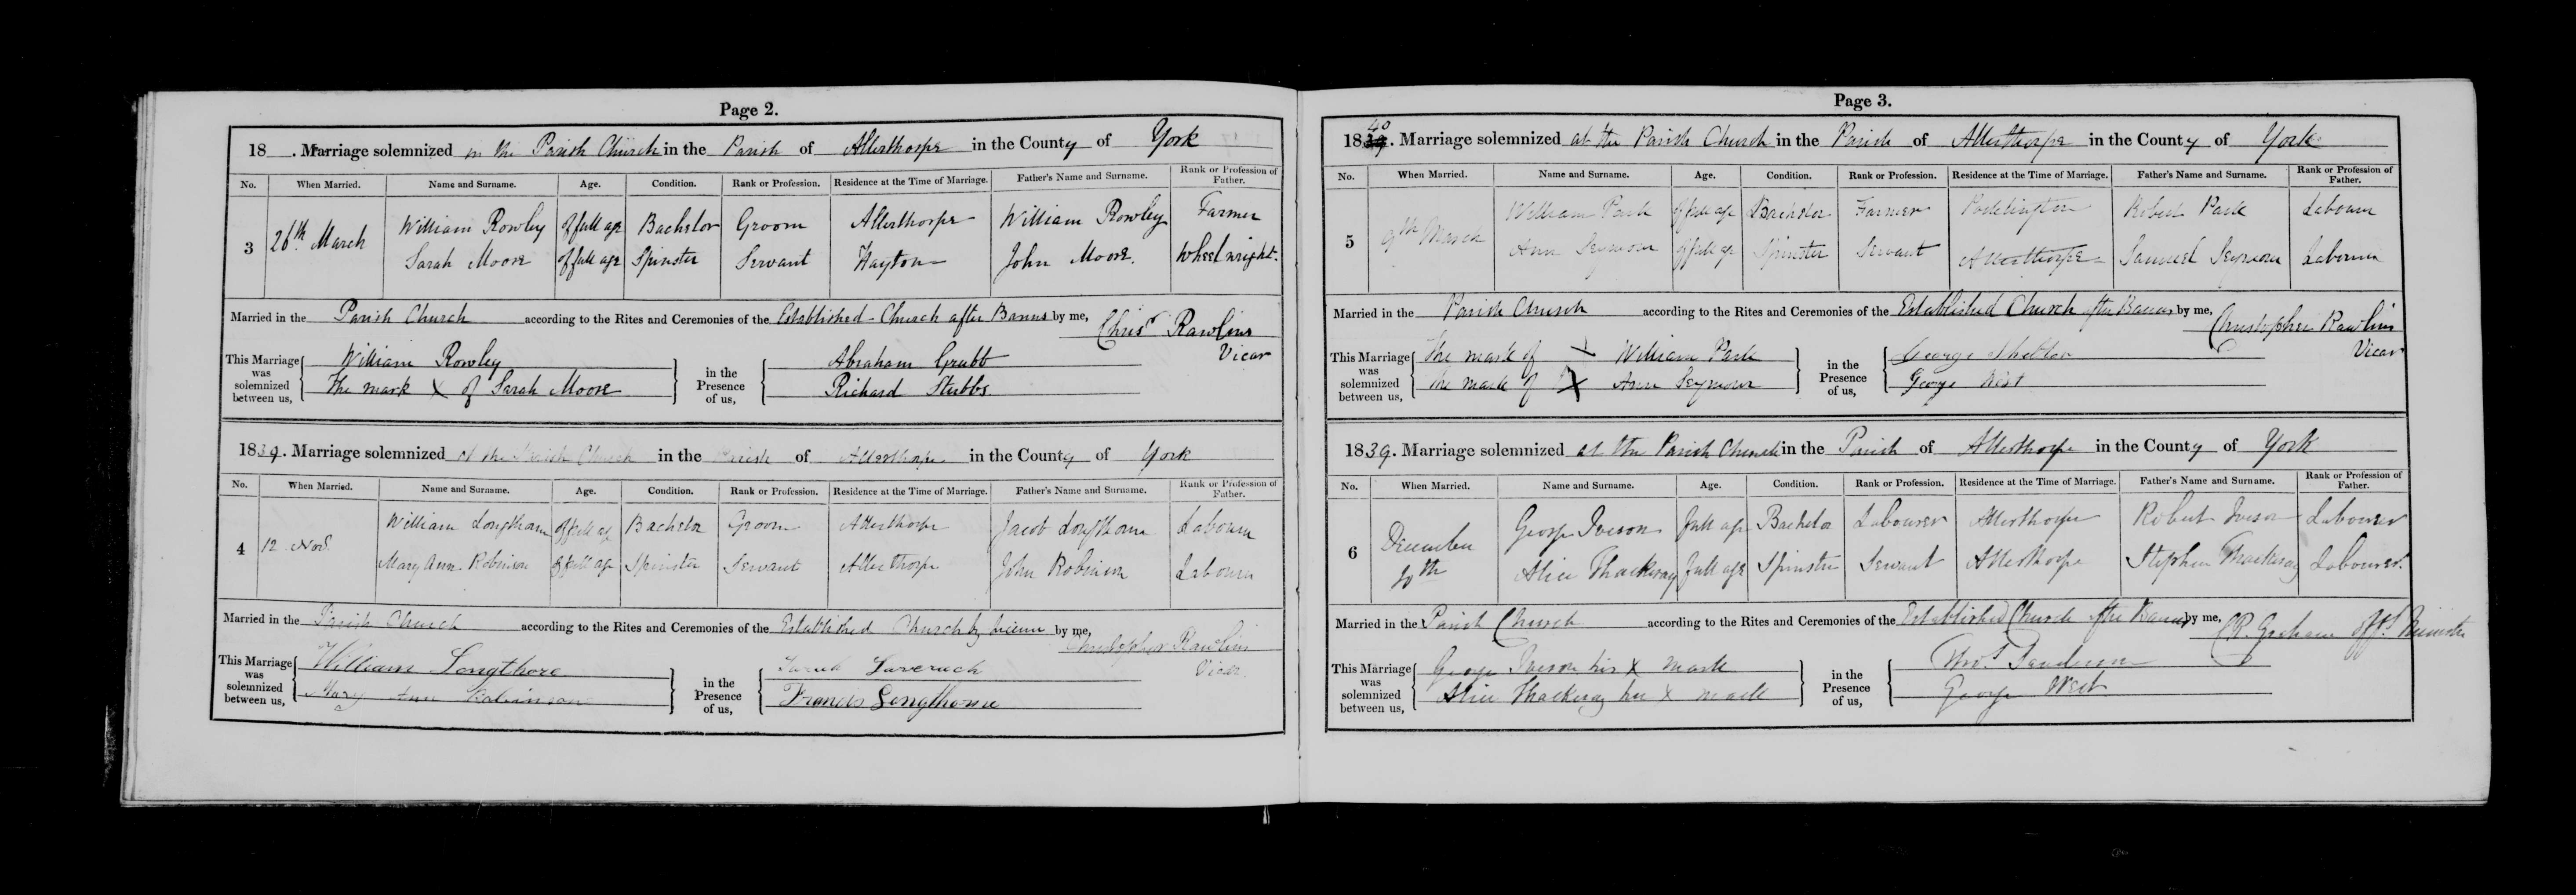 Page 2.
18 . Marriage solemnized in the Parish Church in the Parish of Allerthorpe in the County of York
No. When Married. Name and Surname. Age. Condition. Rank or Profession. Residence at the Time of Marriage. Father's Name and Surname. Rank or Profession of Father.
3 26th March William Rowley of full age Bachelor Groom Allerthorpe William Rowley Farmer
Sarah Moore of full age Spinster Servant Hayton John Moore. Wheelwright.
Married in the Parish Church according to the Rites and Ceremonies of the Established Church after Banns by me, Chrisr Rawlins
Vicar
This Marriage was solemnized between us, William Rowley in the Presence of us, Abraham Grubb
The mark X of Sarah Moore Richard Stubbs
1839. Marriage solemnized at the Parish Church in the Parish of Allerthorpe in the County of York
No. When Married. Name and Surname. Age. Condition. Rank or Profession. Residence at the Time of Marriage. Father's Name and Surname. Rank or Profession of Father.
4 12 Nov. William Longthorne of full age Bachelor Groom Allerthorpe Jacob Longthorne Labourer
Mary Ann Robinson of full age Spinster Servant Allerthorpe John Robinson Labourer
Married in the Parish Church according to the Rites and Ceremonies of the Established Church by licence by me, Christopher Rawlins
Vicar.
This Marriage was solemnized between us, William Longthorne in the Presence of us, Laverack
Mary Ann Robinson Francis Longthorne
Page 3.
1840. Marriage solemnized at the Parish Church in the Parish of Allerthorpe in the County of York
No. When Married. Name and Surname. Age. Condition. Rank or Profession. Residence at the Time of Marriage. Father's Name and Surname. Rank or Profession of Father.
5 9th March William Park of full age Bachelor Farmer Pocklington Robert Park Labourer
Ann Seymour of full age Spinster Servant Allerthorpe Samuel Seymour Labourer
Married in the Parish Church according to the Rites and Ceremonies of the Established Church after Banns by me, Christopher Rawlins
Vicar
This Marriage was solemnized between us, The mark of X William Park in the Presence of us, George
The mark of X Ann Seymour George West
1839. Marriage solemnized at the Parish Church in the Parish of Allerthorpe in the County of York
No. When Married. Name and Surname. Age. Condition. Rank or Profession. Residence at the Time of Marriage. Father's Name and Surname. Rank or Profession of Father.
6 December 10th George Iveson full age Bachelor Labourer Allerthorpe Robert Iveson Labourer
Alice Thackeray full age Spinster Servant Allerthorpe Stephen Thackeray Labourer.
Married in the Parish Church according to the Rites and Ceremonies of the Established Church after Banns by me, C R. Graham Offg Minister
This Marriage was solemnized between us, George Iveson his X mark in the Presence of us, Thos
Alice Thackeray her X mark George West